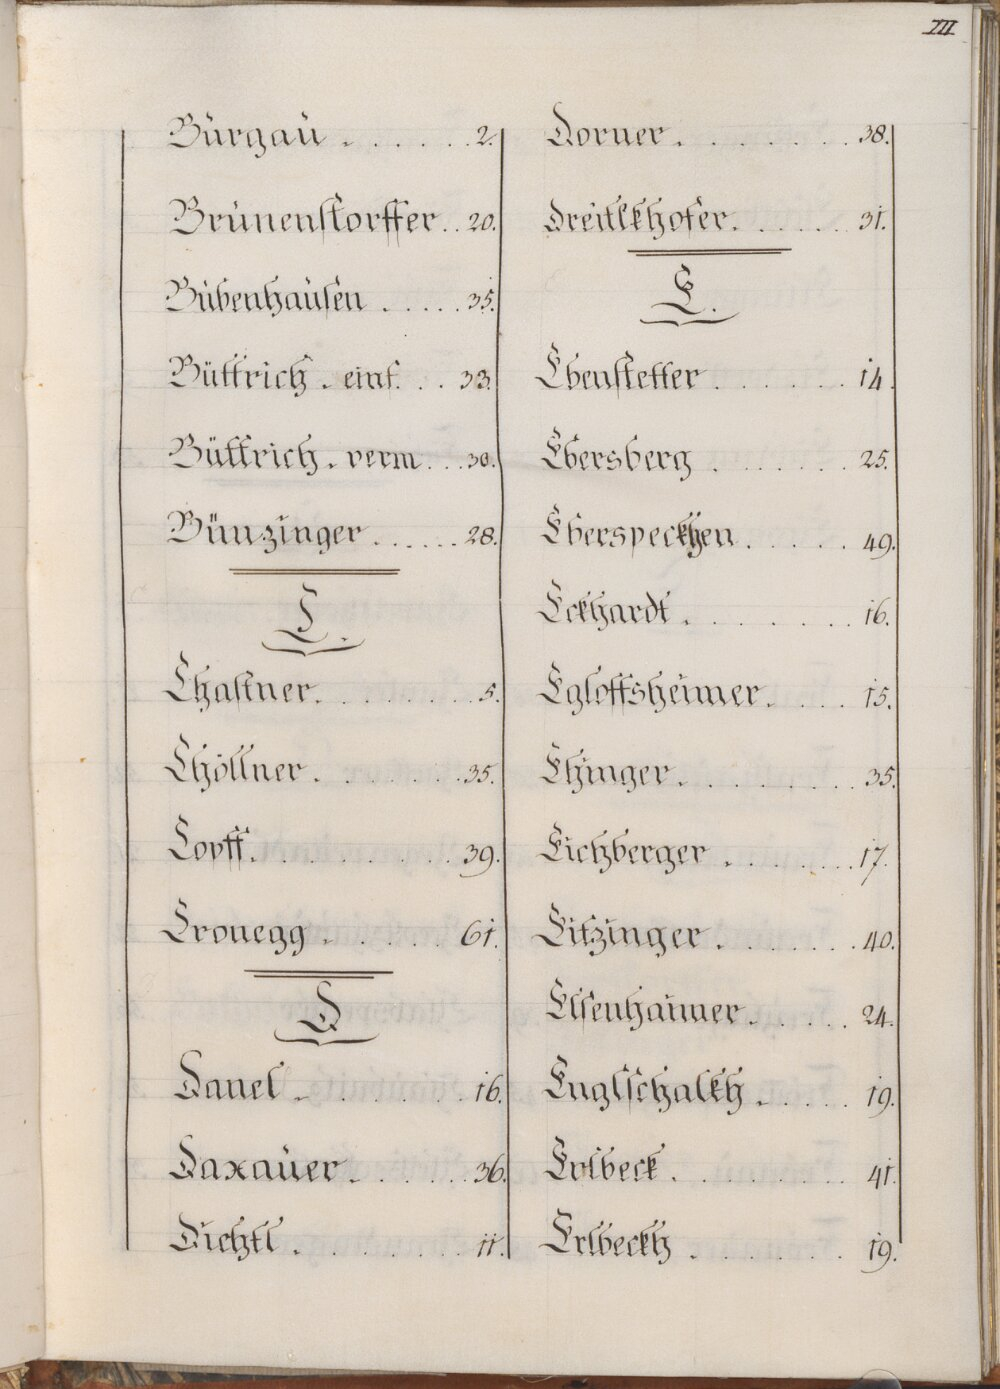 III
Bürgaü . . . . . . 2.
Brünenstorffer . . 20.
Bübenhaüsen . . . . . 35.
Büttrich . einf. . . 33.
Büttrich . verm . . . 30.
Bünzinger . . . . . . 28.
C.
Chastner . . . . . . . . 5.
Chöllner . . . . . . . 35.
Copff . . . . . . . . . 39.
Cronegg . . . . . . 61.
D
Danel . . . . . . . . 16.
Daxaüer . . . . . . 36.
Dichtl . . . . . . . . 11.
Dorner . . . . . . . . 38.
Dreitlkhofer . . . . . . 31.
E.
Ebenstetter . . . . . . . 14.
Ebersberg . . . . . . . 25.
Eberspeckhen . . . . . 49.
Eckhardt . . . . . . . . 16.
Egloffsheimer . . . . . 15.
Ehinger . . . . . . . . 35.
Eichberger . . . . . . . . 17.
Eitzinger . . . . . . . 40.
Elsenhaimer . . . . . 24.
Englschalkh . . . . . 19.
Eolbeck . . . . . . . . 41.
Erlbeckh . . . . . . . 19.